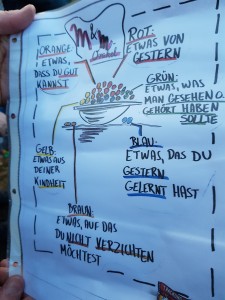 m&m's
ORANGE:
ETWAS,
DASS DU GUT
KANNST
ROT:
ETWAS VON
GESTERN
GRÜN:
ETWAS, WAS
MAN GESEHEN O.
GEHÖRT HABEN
SOLLTE
GELB:
ETWAS AUS
DEINER
KINDHEIT
BLAU:
ETWAS, DAS DU
GESTERN
GELERNT HAST
BRAUN:
ETWAS, AUF DAS
DU NICHT VERZICHTEN
MÖCHTEST